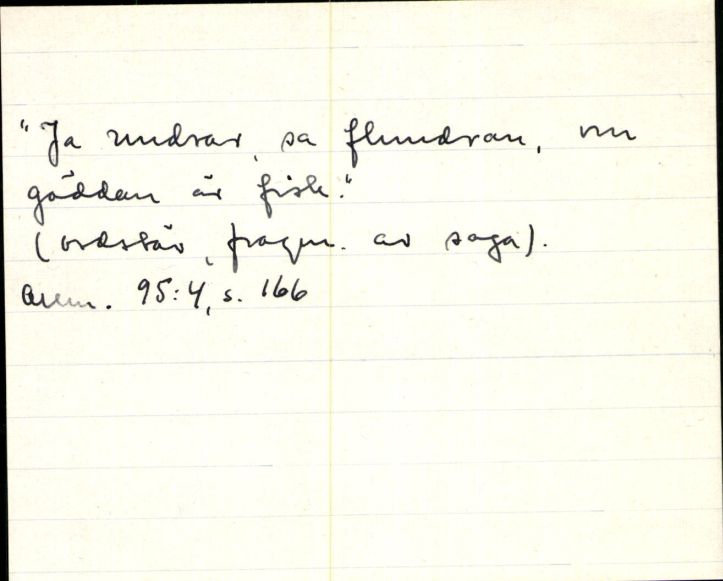 "Ja undrar, sa flundran, om
gäddan är fisk."
(ordstäv, fragm. av saga).
Anm. 95:4, s. 166